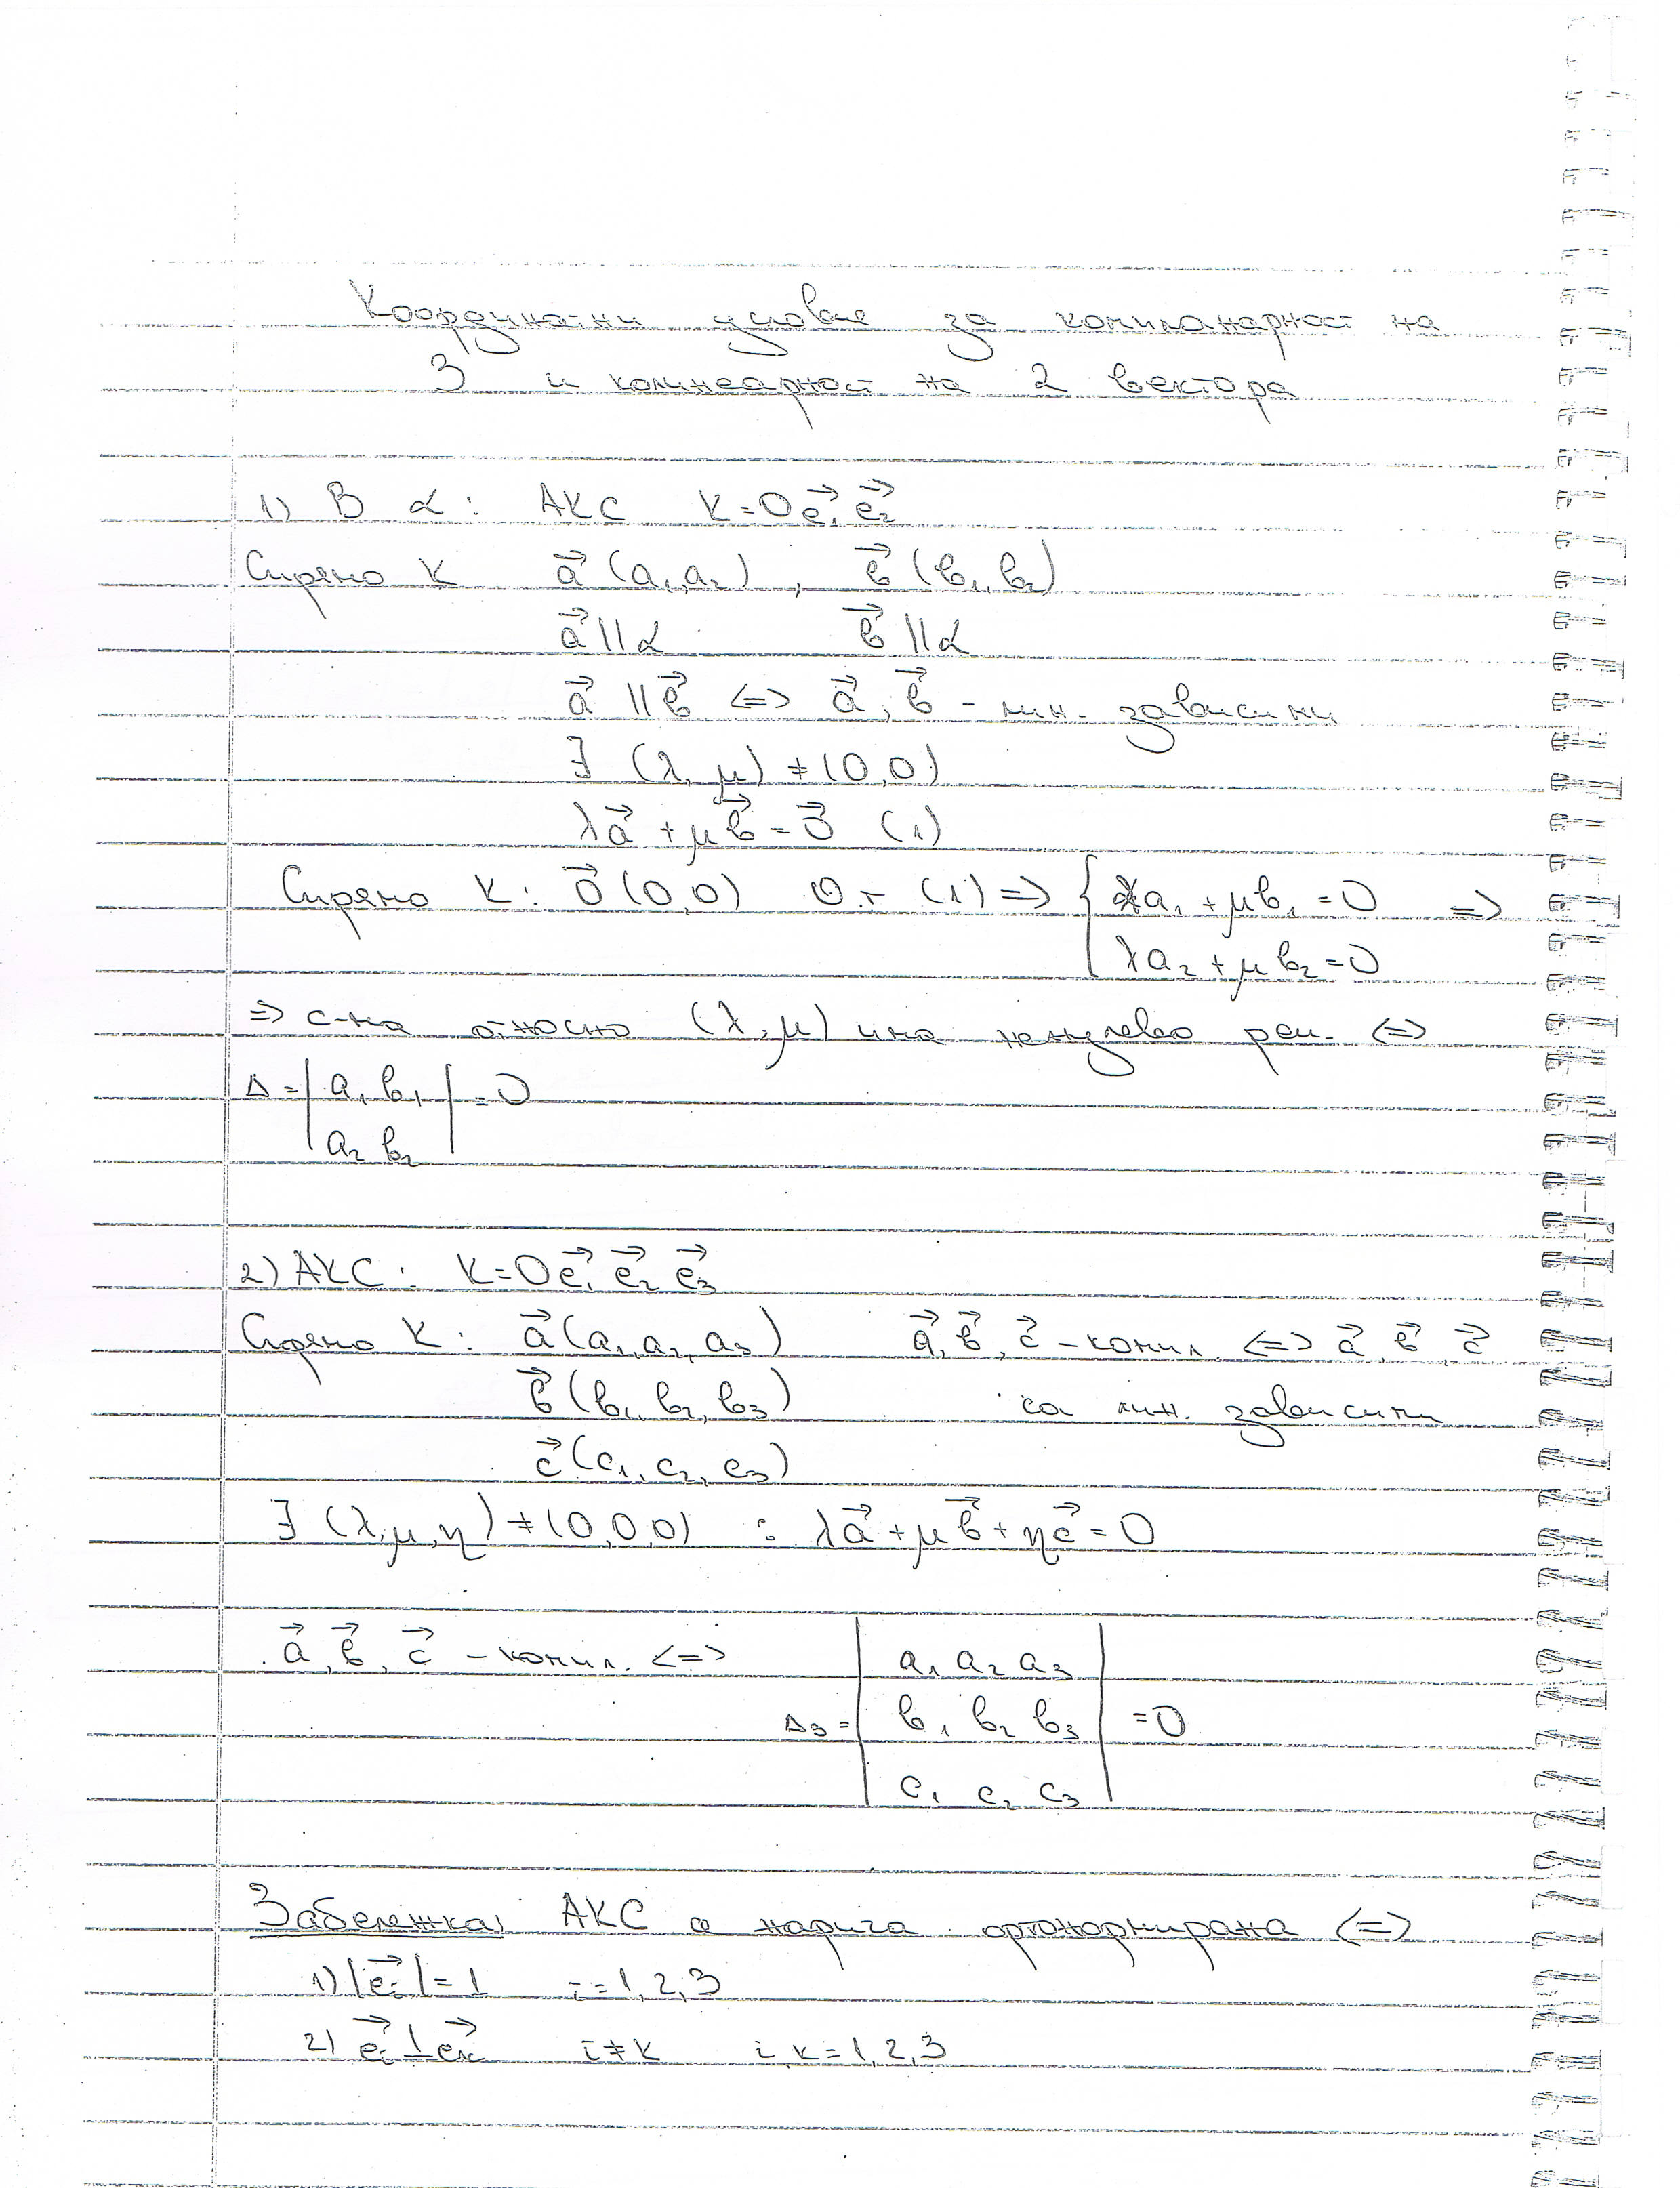 Координатни условие за компланарност на
3 и колинеарност на 2 вектора
1) В α: АКС K=Oe⃗₁e⃗₂
Спрямо K a⃗(a₁,a₂), b⃗(b₁,b₂)
a⃗ || α b⃗ || α
a⃗ || b⃗ <=> a⃗, b⃗ - лин. зависими
∃ (λ, μ) ≠ (0,0)
λa⃗ + μb⃗ = o⃗ (1)
Спрямо K: o⃗(0,0) От (1) => { λa₁ + μb₁ = 0 =>
λa₂ + μb₂ = 0
=> с-ма относно (λ, μ) има ненулево реш. <=>
Δ = | a₁ b₁ | = 0
a₂ b₂
2) АКС: K=Oe⃗₁e⃗₂e⃗₃
Спрямо K: a⃗(a₁,a₂,a₃) a⃗, b⃗, c⃗ - компл. <=> a⃗, b⃗, c⃗
b⃗(b₁,b₂,b₃) са лин. зависими
c⃗(c₁,c₂,c₃)
∃ (λ,μ,η) ≠ (0,0,0) : λa⃗ + μb⃗ + ηc⃗ = 0
a⃗, b⃗, c⃗ - компл. <=> | a₁ a₂ a₃ |
Δ₃ = | b₁ b₂ b₃ | = 0
| c₁ c₂ c₃ |
Забележка: АКС се нарича ортонормирана <=>
1) |e⃗ᵢ| = 1 i=1,2,3
2) e⃗ᵢ ⊥ e⃗ₖ i≠k i,k=1,2,3